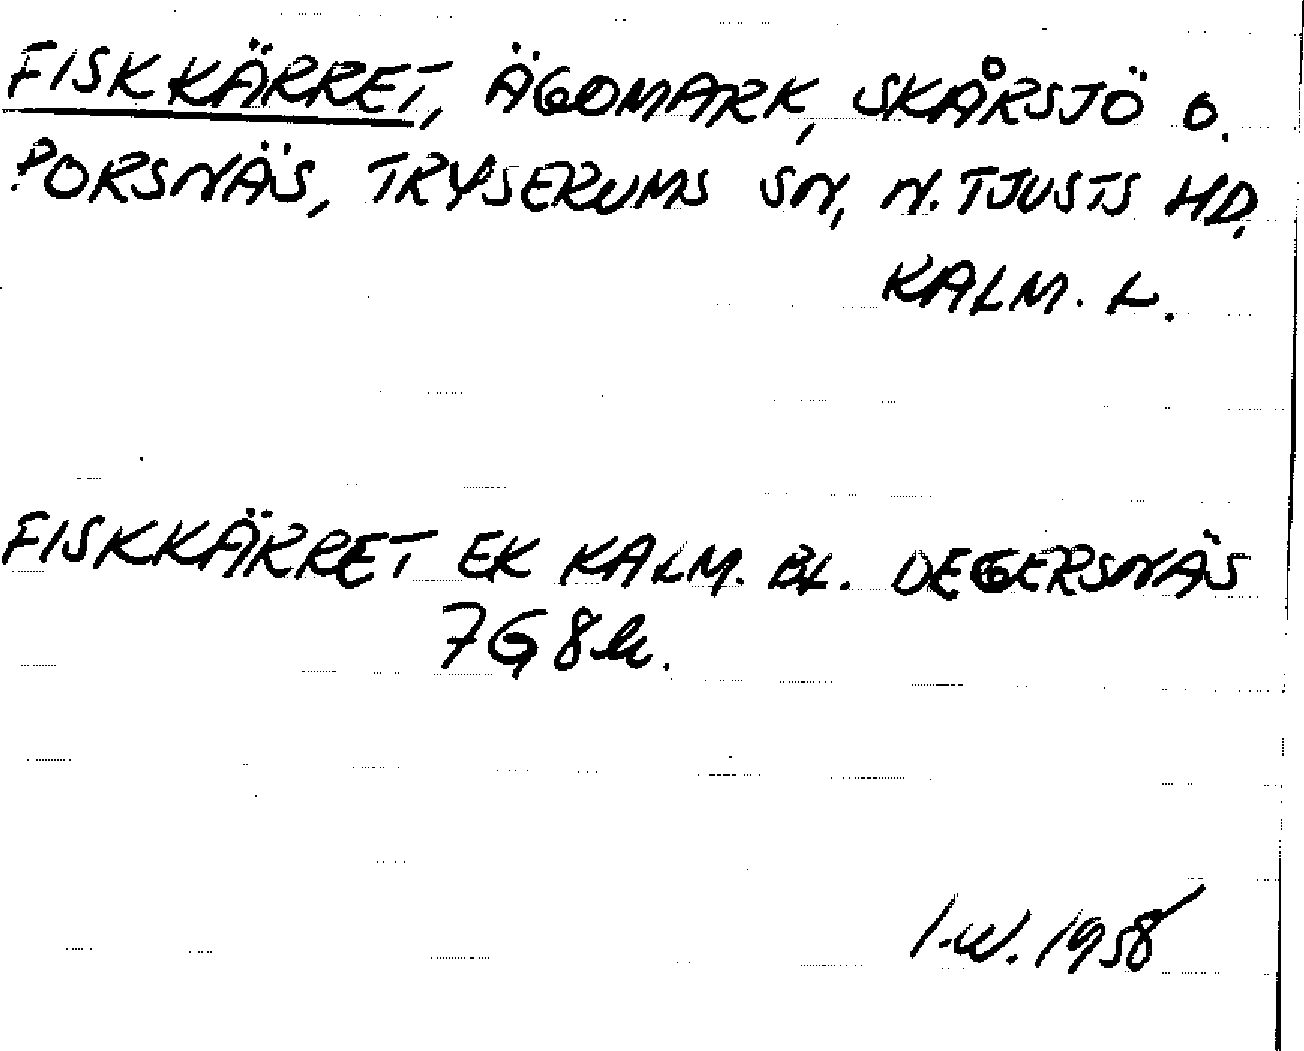 FISKKÄRRET, ÄGOMARK, SKÅRSJÖ O.
PORSNÄS, TRYSERUMS SN, N. TJUSTS HD,
KALM. L.
FISKKÄRRET EK KALM. BL. DEGERSNÄS
7G8h.
I.W. 1958